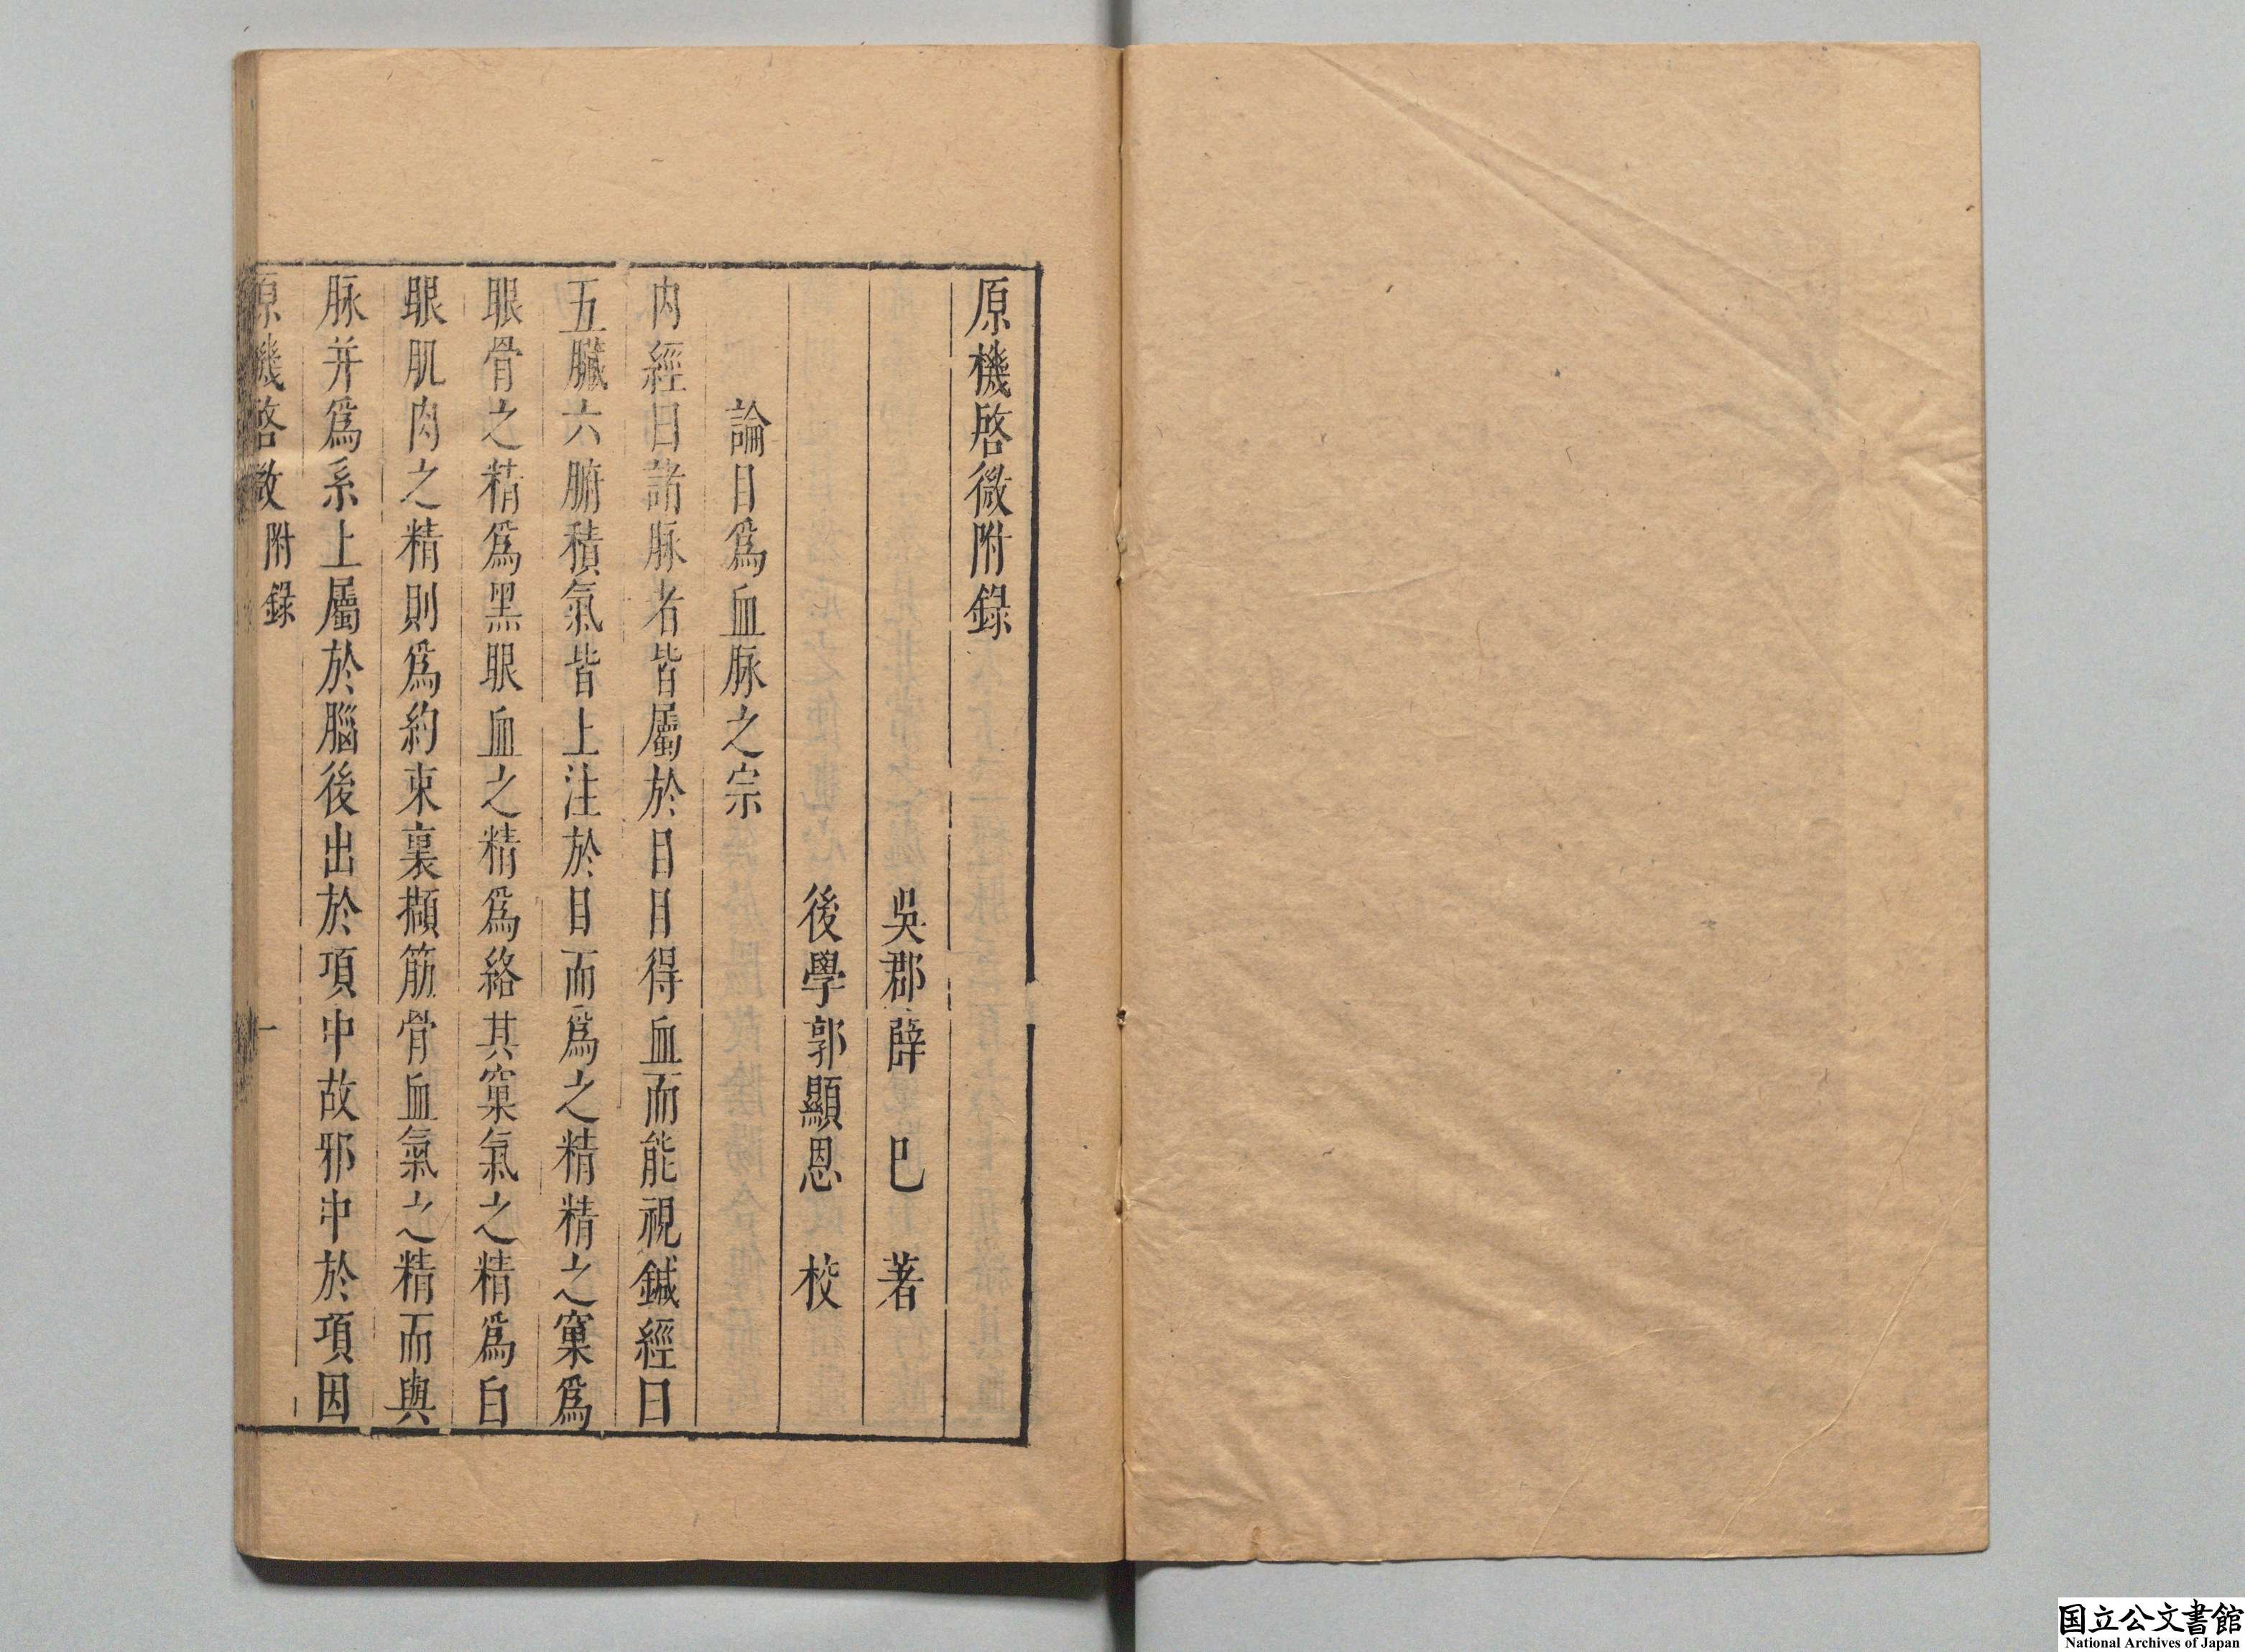 原機啓微附錄
吳郡薛 巳 著
後學郭顯恩 校
論目爲血脉之宗
内經曰諸脉者皆屬於目目得血而能視鍼經曰
五臟六腑積氣皆上注於目而爲之精精之窠爲
眼骨之精爲黑眼血之精爲絡其窠氣之精爲白
眼肌肉之精則爲約束裏擷筋骨血氣之精而與
脉并爲系上屬於腦後出於項中故邪中於項因
原機啓微 附錄 一
国立公文書館
National Archives of Japan